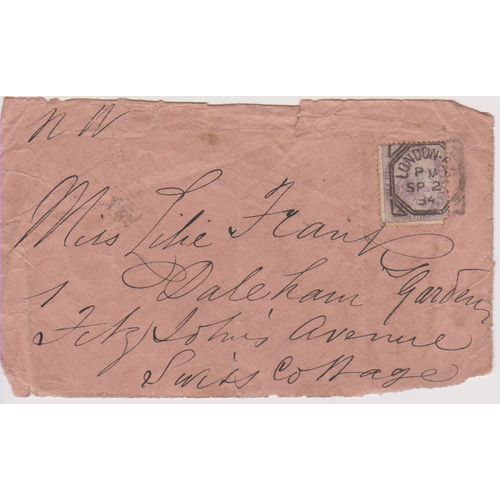 N W
LONDON
PM
SP 2
84
Miss Lilie Frant
1 Daleham Gardens
Fitz John's Avenue
Swiss Cottage